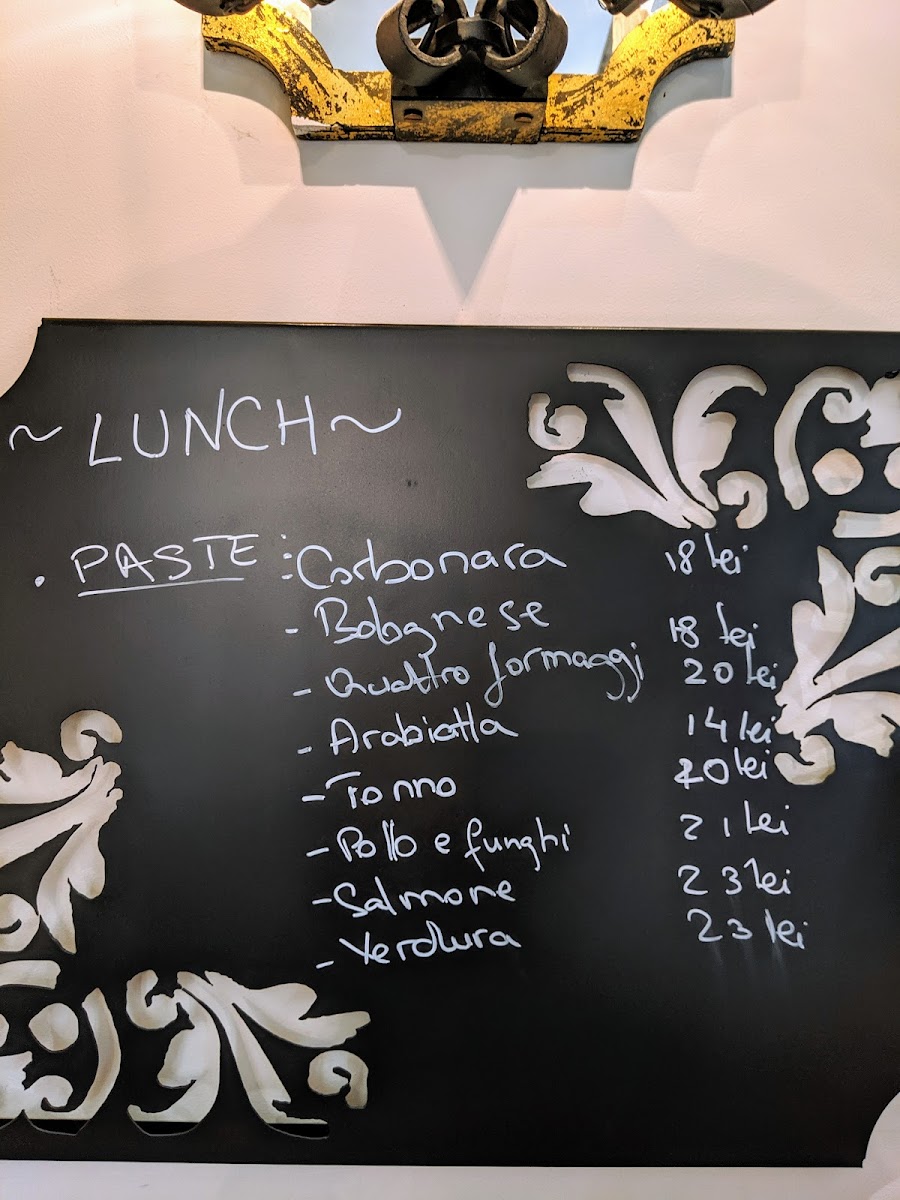 ~ LUNCH ~
. PASTE : Carbonara 18 lei
- Bolognese 18 lei
- Quattro formaggi 20 lei
- Arabiatta 14 lei
- Tonno 20 lei
- Pollo e funghi 21 lei
- Salmone 23 lei
- Verdura 23 lei